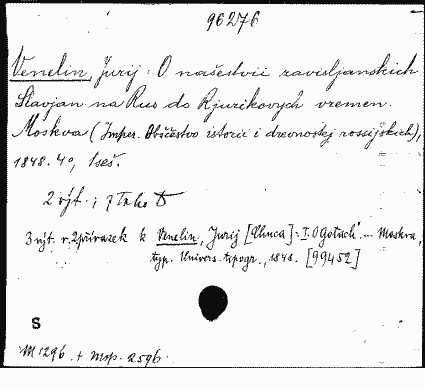 96276
Venelin, Jurij: O našestvii zavisljanskich
Slavjan na Rus do Rjurikovych vremen.
Moskva (Imper. Obščestvo istorii i drevnostej rossijskich),
1848. 4°, 1seš.
2 výt. ; z toho
3 výt. v. 2 přívazek k Venelin, Jurij [Chuca]: I. O Gotach ... Moskva,
typ. Univers. tipogr., 1848. [99452]
S
M 1296 + msp. 2596.